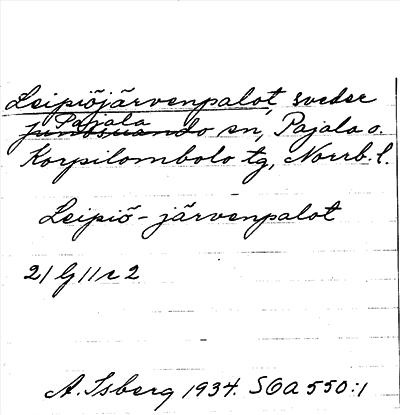 Leipiöjärvenpalot, sveder
Pajala
Junosuando sn, Pajala o.
Korpilombolo tg, Norrb. l.
Leipiö-järvenpalot
21 G 11 c 2
A. Isberg 1934. SOA 550:1